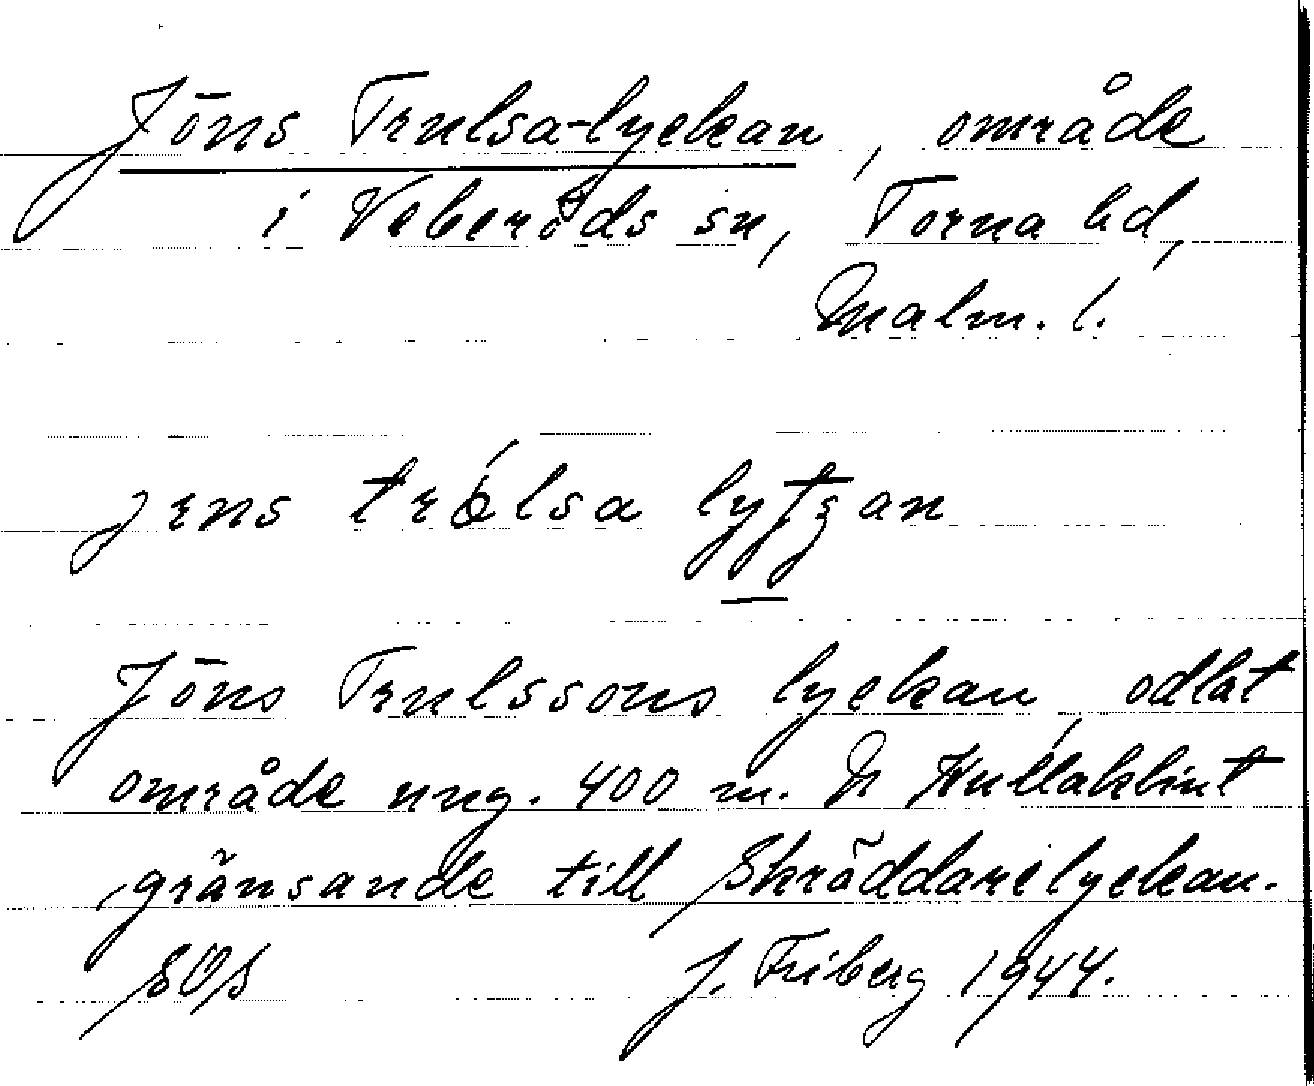 Jöns Trulsa-lyckan, område
i Veberöds sn, Torna hd,
Malm. l.
jens trólsa lytʒan
Jöns Trulssons lyckan, odlat
område ung. 400 m. N Kullaklint
gränsande till Skräddarelyckan.
SOS J. Friberg 1944.